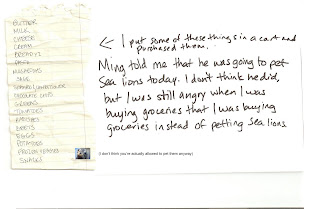 BUTTER
MILK
CHEESE
CREAM
BREAD x2
PASTA
GREENS
TOMATOES
RADISHES
BEETS
EGGS
POTATOES
FROZEN PEAS
SNACKS
← I put some of these things in a cart and
purchased them.
Ming told me that he was going to pet
Sea lions today. I don't think he did,
but I was still angry when I was
buying groceries that I was buying
groceries instead of petting sea lions
(I don't think you're actually allowed to pet them anyway)